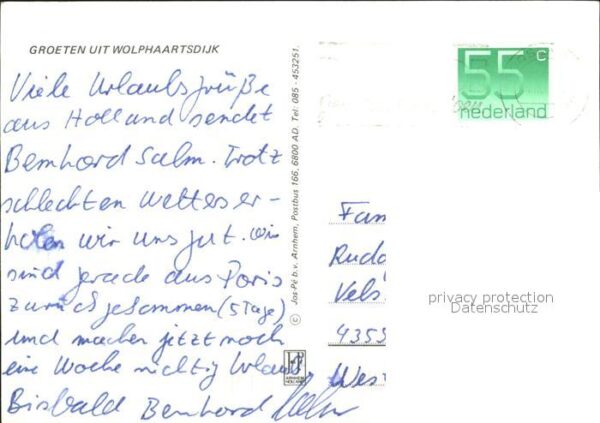 GROETEN UIT WOLPHAARTSDIJK
Viele Urlaubsgrüße
aus Holland sendet
Bernhard Salm. Trotz
schlechten Wetters er-
holen wir uns gut. Wir
sind gerade aus Paris
zurückgekommen (5 Tage)
und machen jetzt noch
eine Woche richtig Urlaub
Bis bald Bernhard
© Jos-Pé b.v. Arnhem, Postbus 166, 6800 AD. Tel: 085 - 453251.
55 c
nederland
Fam
Rudo
Vels
4355
Wes
privacy protection
Datenschutz